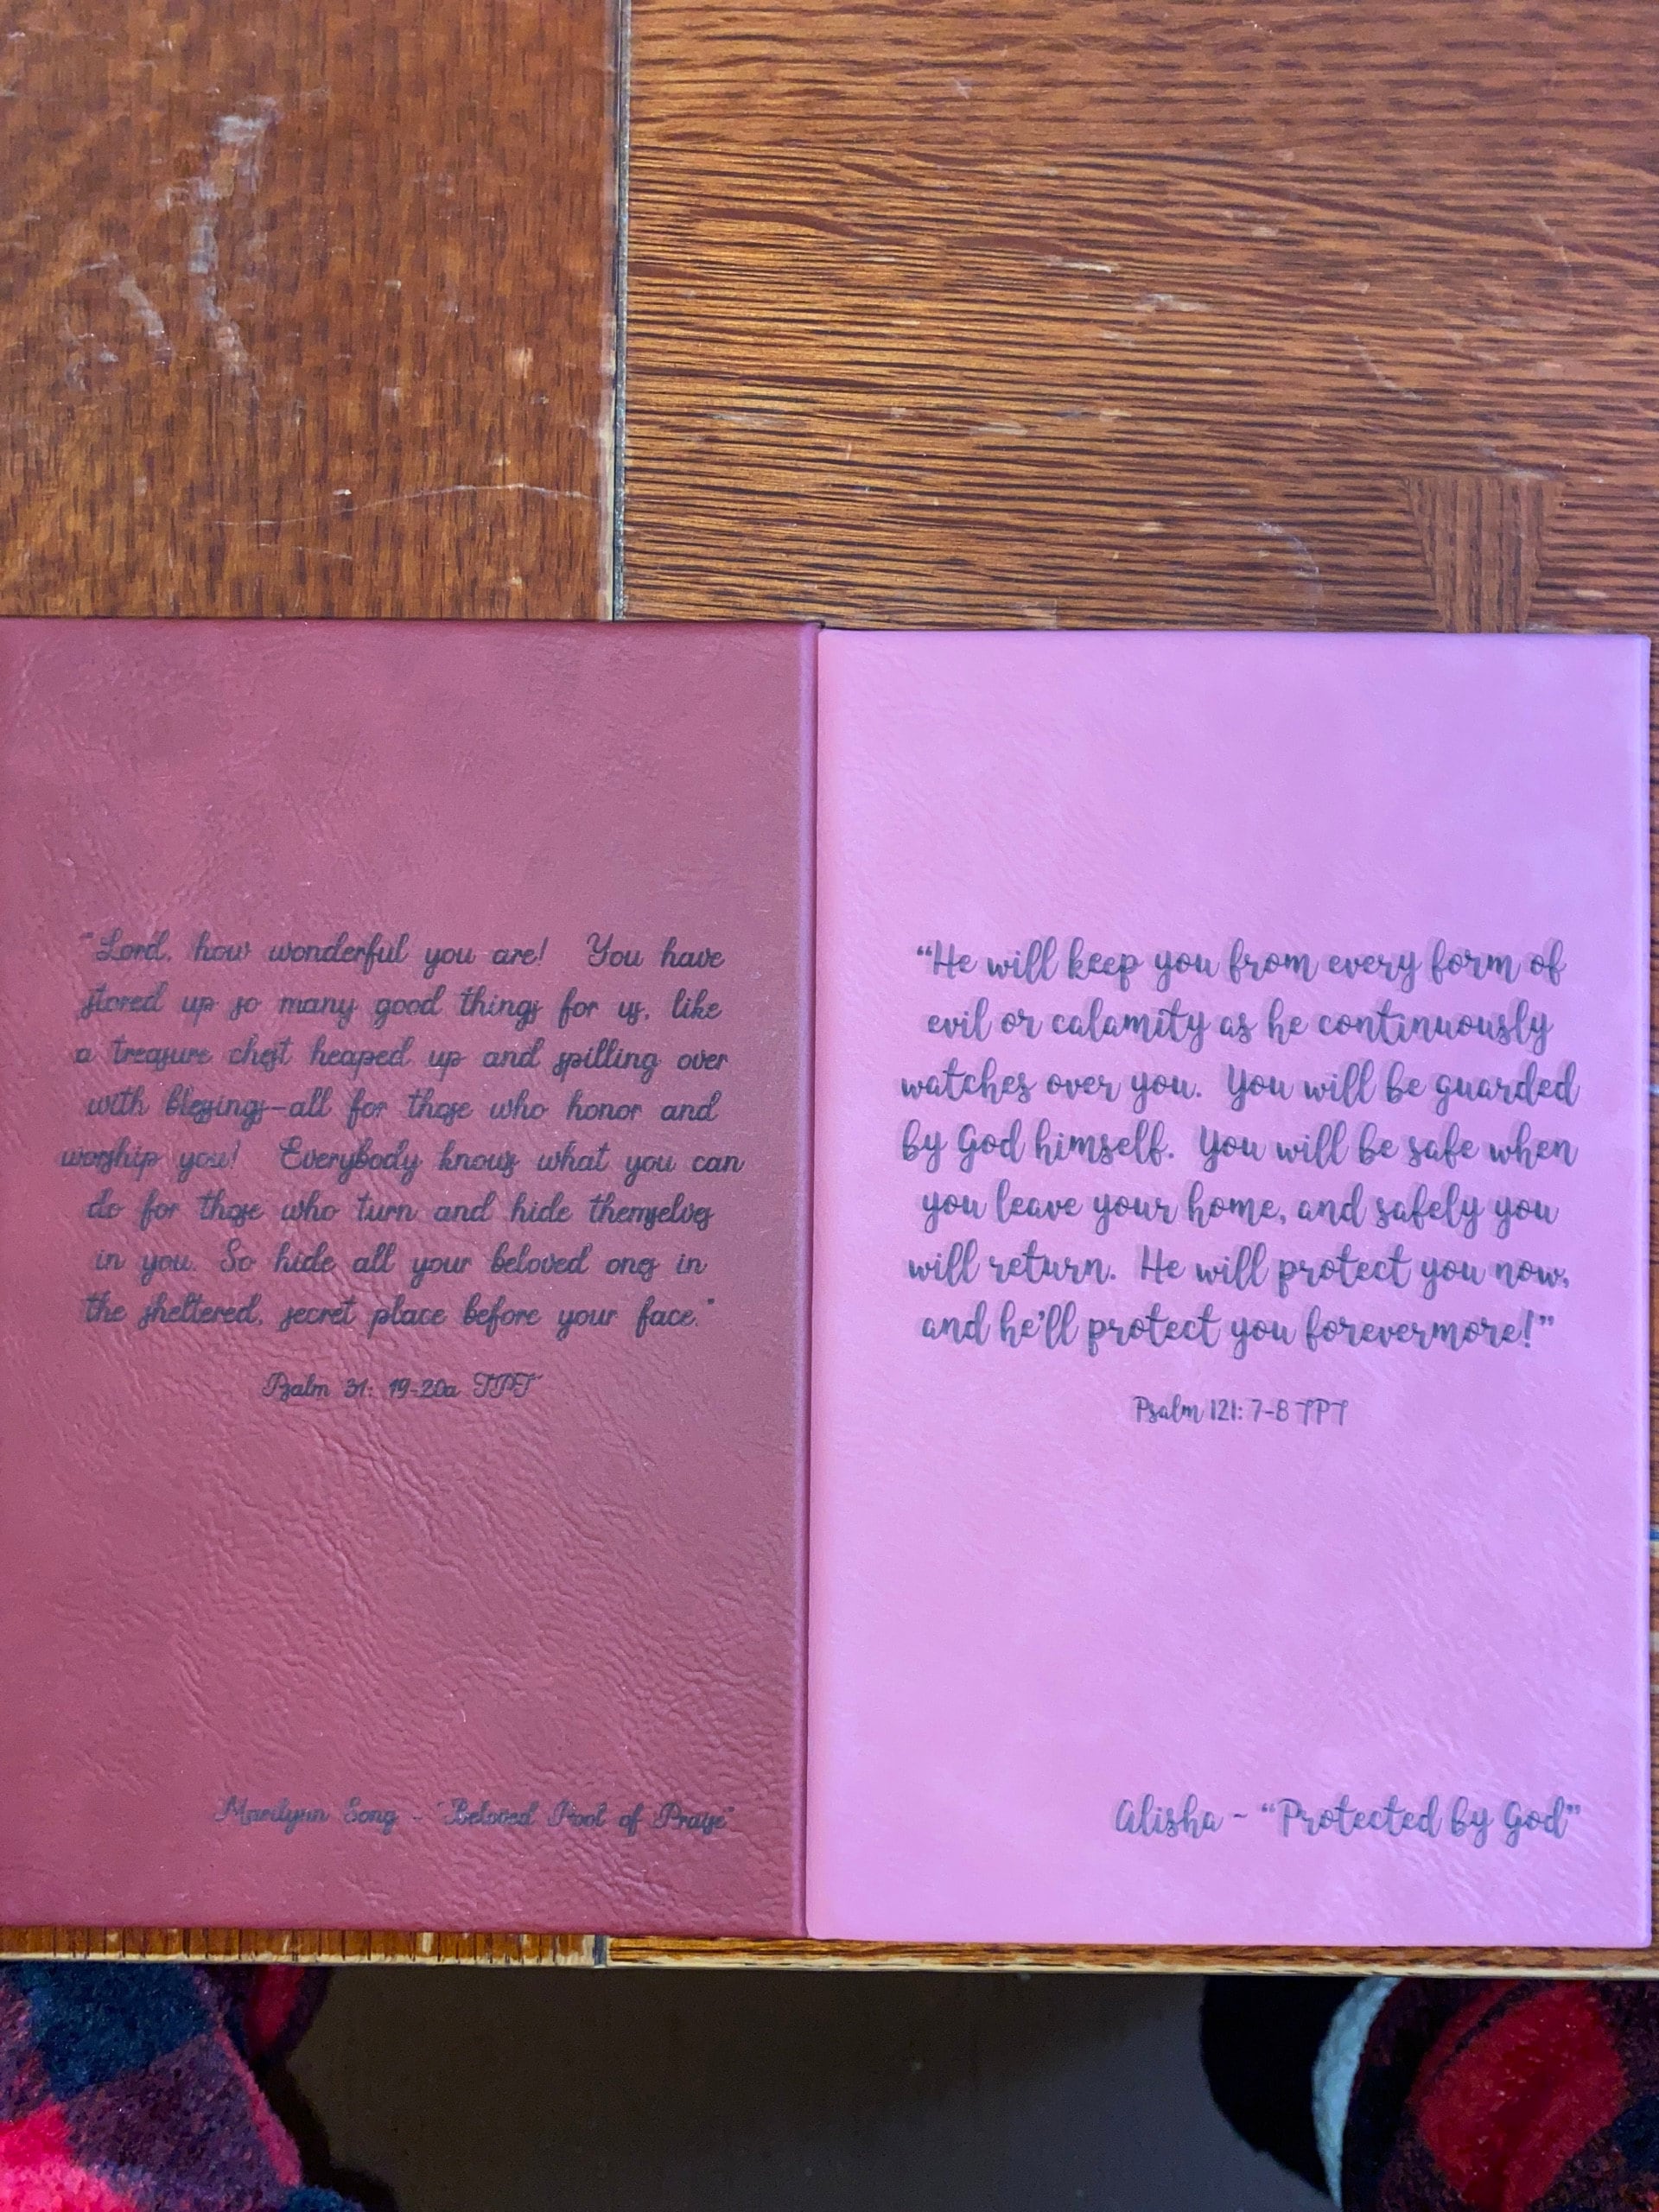 "Lord, how wonderful you are! You have
stored up so many good things for us, like
a treasure chest heaped up and spilling over
with blessings—all for those who honor and
worship you! Everybody knows what you can
do for those who turn and hide themselves
in you. So hide all your beloved ones in
the sheltered, secret place before your face."
Psalm 31: 19-20a TPT
Marilynn Song ~ "Beloved Pool of Praise"
“He will keep you from every form of
evil or calamity as he continuously
watches over you. You will be guarded
by God himself. You will be safe when
you leave your home, and safely you
will return. He will protect you now,
and he'll protect you forevermore!”
Psalm 121: 7-8 TPT
Alisha ~ “Protected by God”